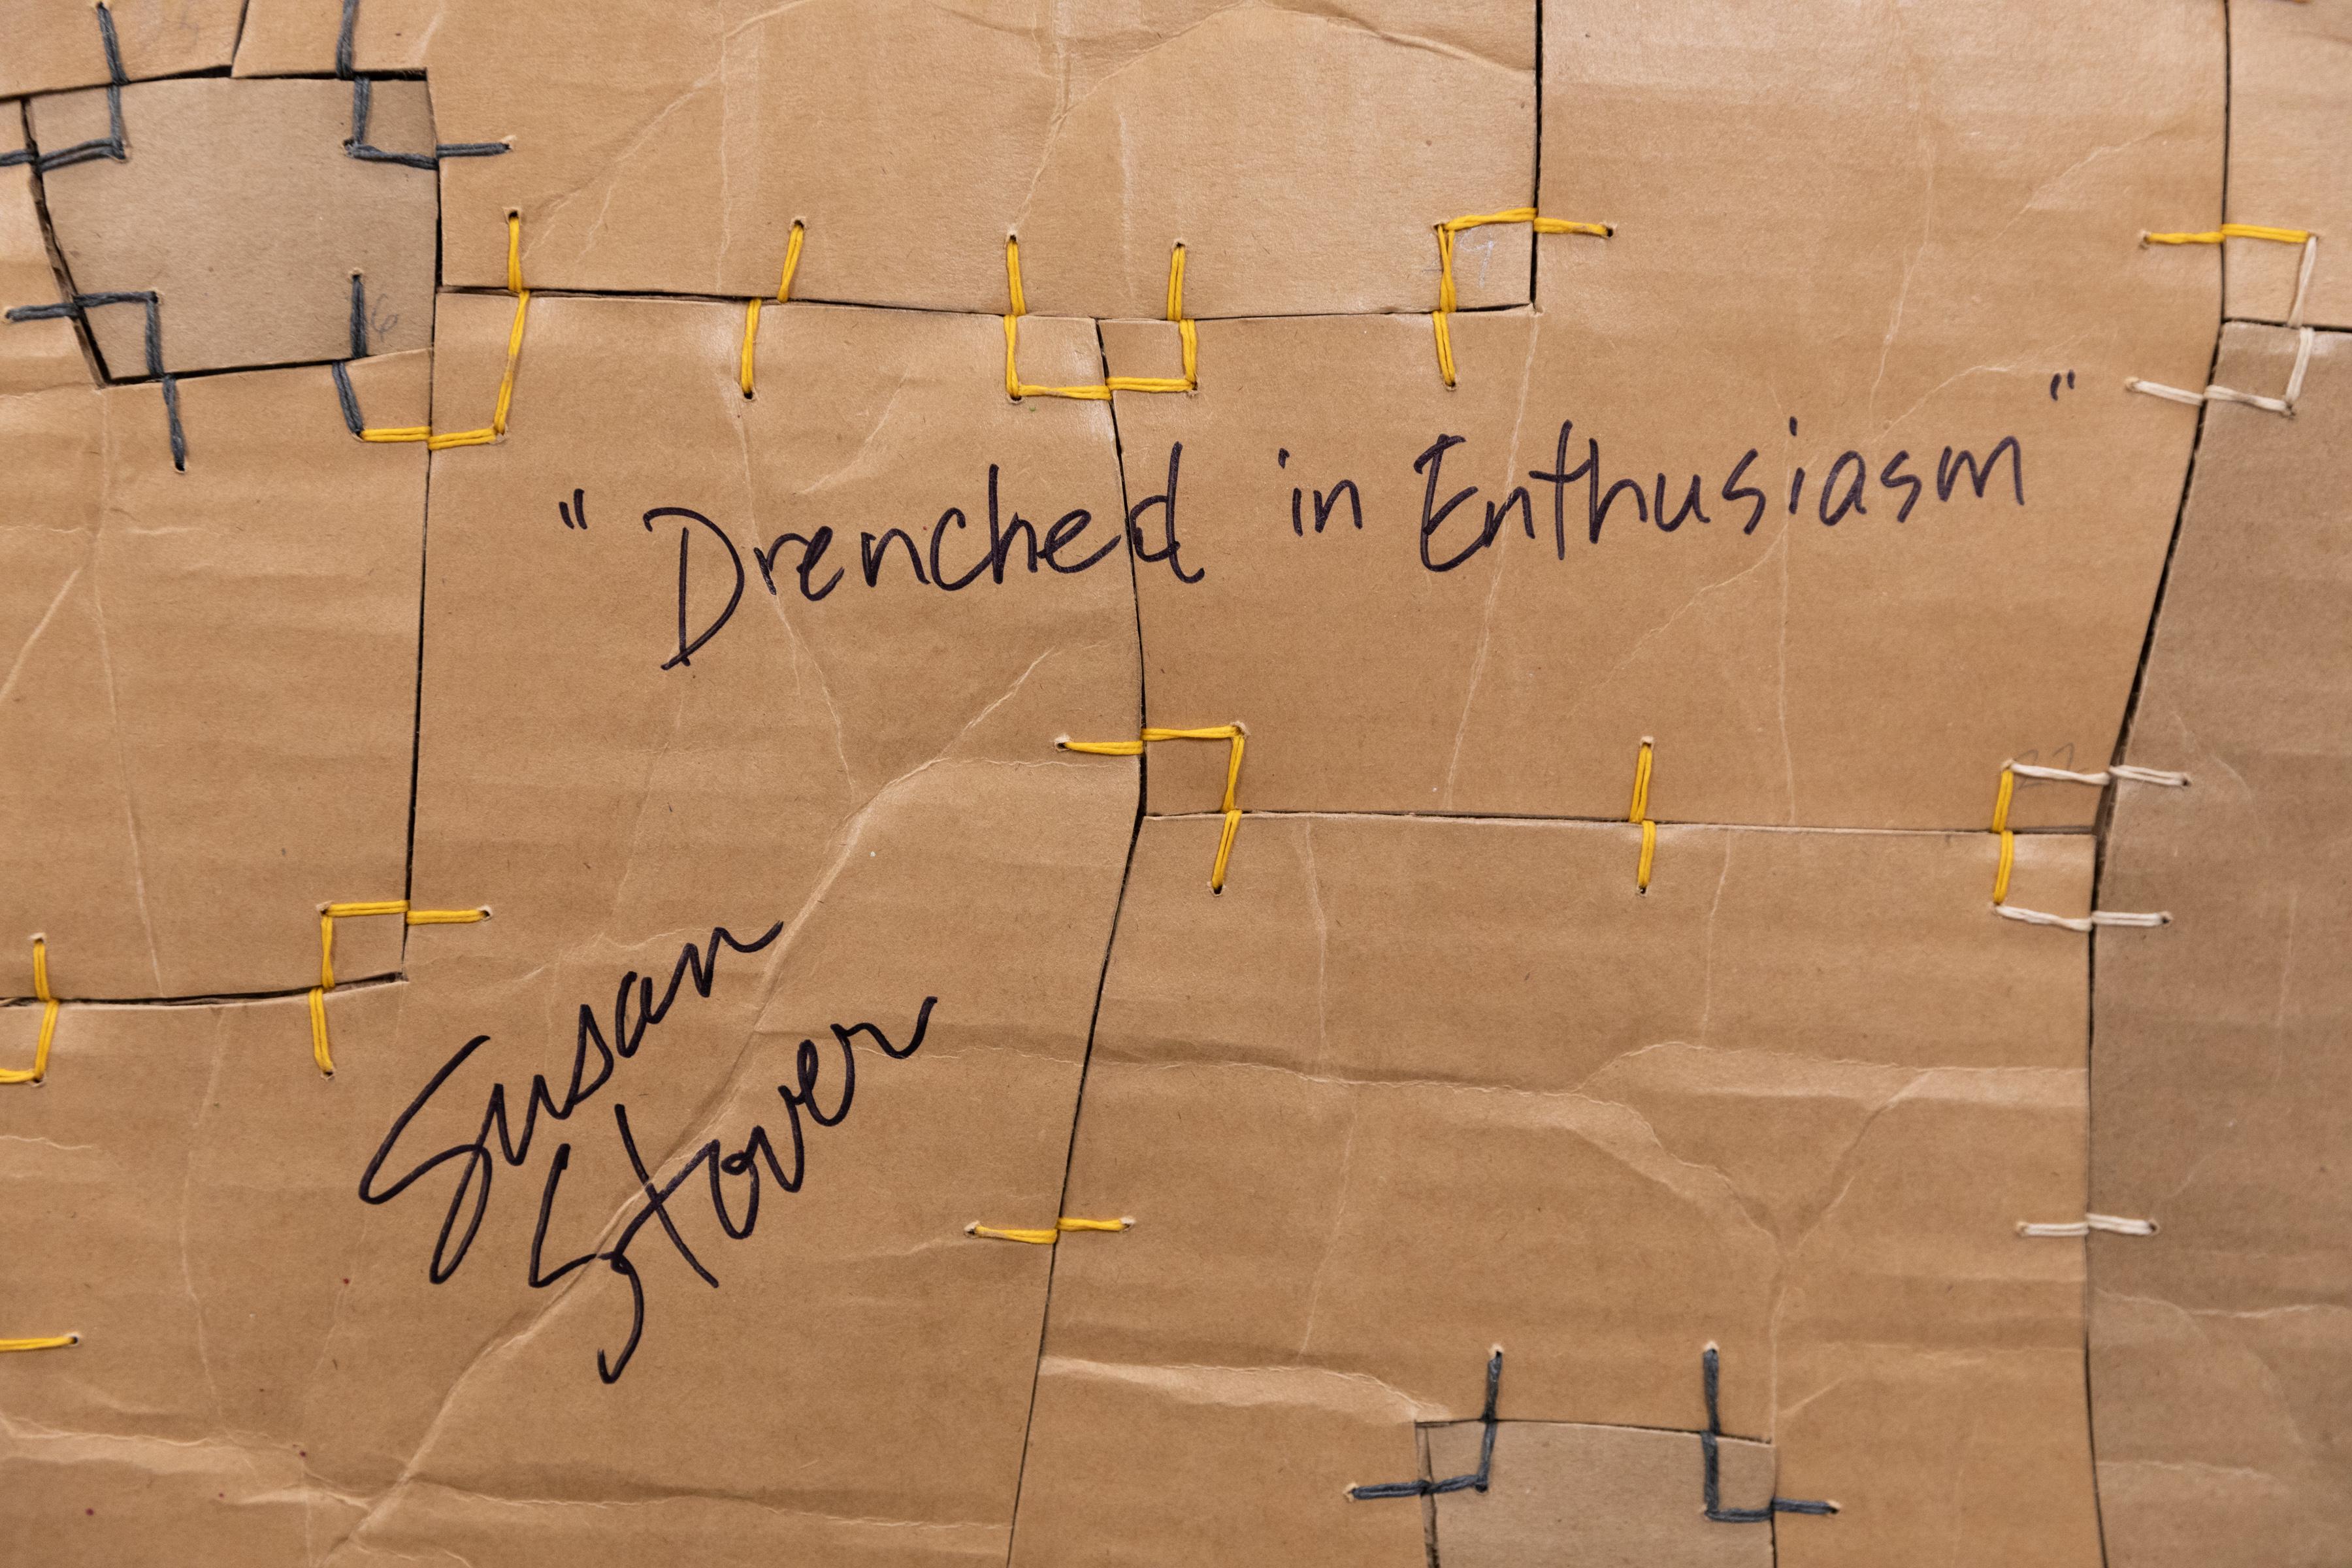 "Drenched in Enthusiasm"
Susan
Stover